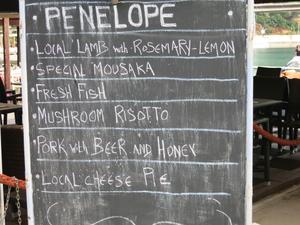 PENELOPE
• LOCAL LAMB with ROSEMARY-LEMON
• SPECIAL MOUSAKA
• FRESH FISH
• MUSHROOM RISOTTO
• PORK with BEER AND HONEY
• LOCAL CHEESE PIE